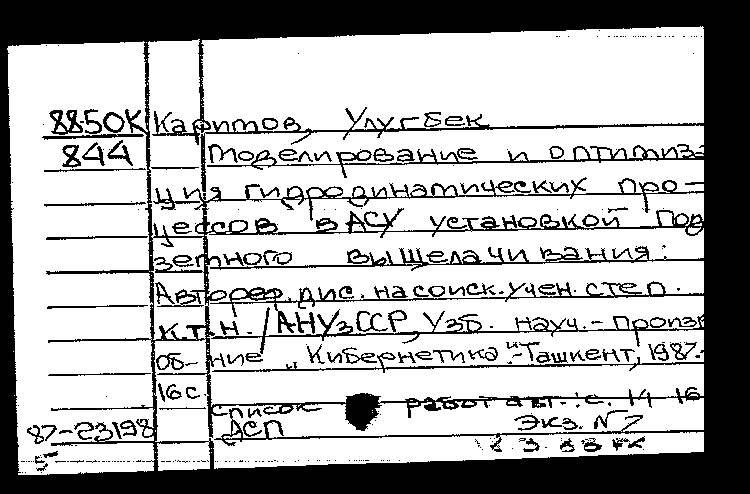 8850К Каримов, Улугбек
844 Моделирование и оптимиза
ция гидродинамических про-
цессов в АСУ установкой под
земного выщелачивания:
Автореф. дис. на соиск. учен. степ.
к.т.н. / АН УзССР, Узб. науч.-произв
об-ние „Кибернетика".-Ташкент, 1987.-
16 с
Список работ авт.: с. 14 16
87-23198 ДСП Экз. N 7
5